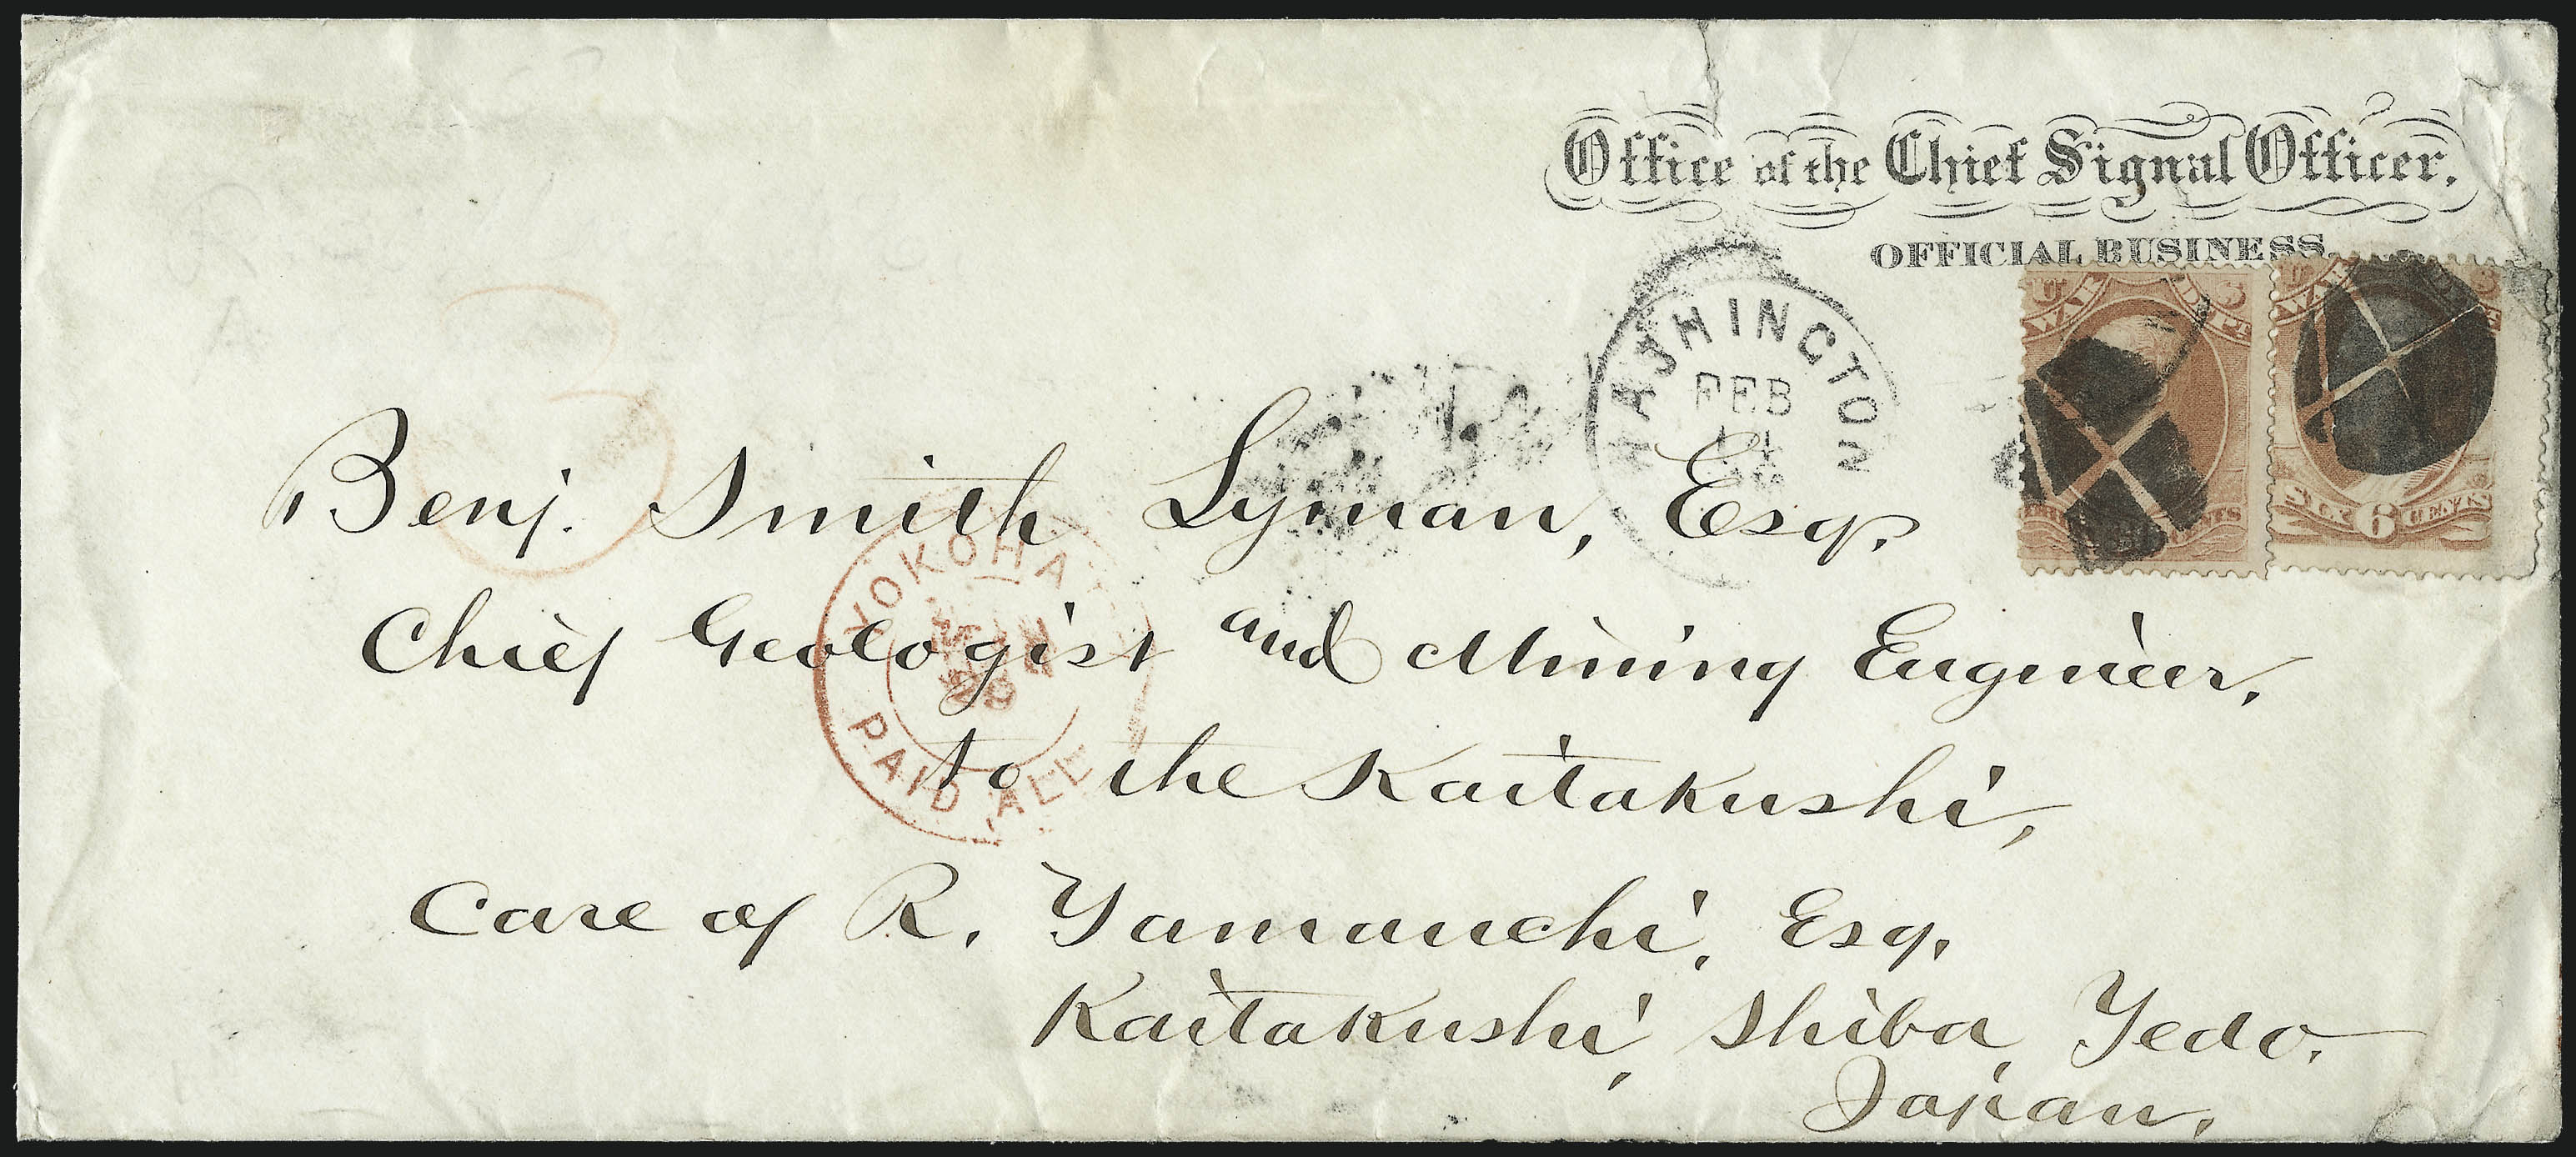 Office of the Chief Signal Officer.
OFFICIAL BUSINESS.
U S
WAR DEPT
U S
WAR
SIX 6 CENTS
WASHINGTON
FEB
Benj. Smith Lyman, Esq.
YOKOHA
Chief Geologist and Mining Engineer,
PAID ALL
to the Kaitakushi,
Care of R. Yamauchi, Esq.
Kaitakushi, Shiba, Yedo.
Japan.